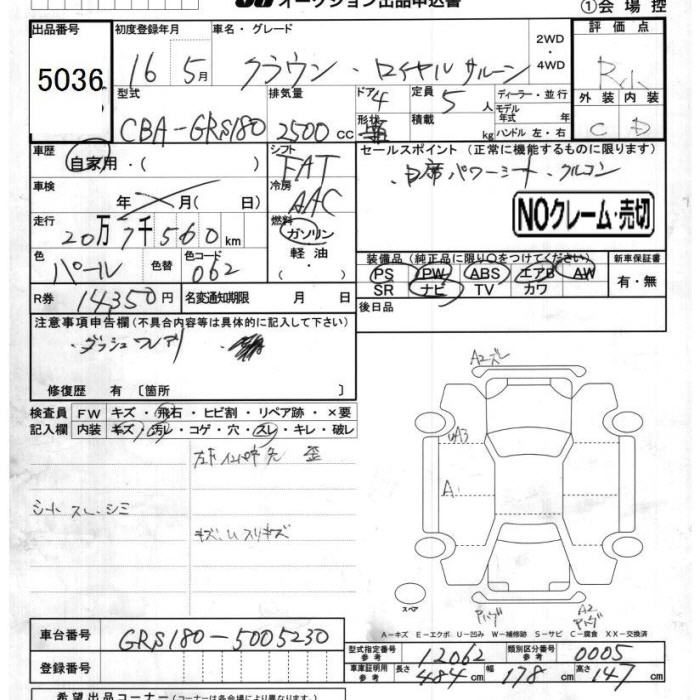 オークション出品申込書
①会場控
出品番号 初度登録年月 車名・グレード 2WD ・ 4WD 評価点
5036 16 5月 クラウン・ロイヤルサルーン
外装 内装
C D
型式 排気量 ドア 定員 ディーラー・並行
CBA-GRS180 2500cc 4 5人 モデル年式 年
形状 積載 kg ハンドル 左・右
車歴 シフト セールスポイント (正常に機能するものに限ります)
自家用・( ) FAT パワーシート・クルコン
車検 冷房
年 月( 日) AAC NOクレーム・売切
走行 燃料
20万7千560km ガソリン
軽油
・( )
色 色替 色コード
パール 062
装備品(純正品に限り○をつけてください) 新車保証書
PS PW ABS エアB AW 有・無
SR ナビ TV カワ
R券 14350円 名変通知期限 月 日 後日品
注意事項申告欄(不具合内容等は具体的に記入して下さい)
修復歴 有 〔箇所 〕
検査員 FW キズ・飛石・ヒビ割・リペア跡・×要
記入欄 内装 キズ・汚レ・コゲ・穴・スレ・キレ・破レ
シート スレ・シミ
A2
A
A2
スペア
A-キズ E-エクボ U-凹み W-補修跡 S-サビ C-腐食 XX-交換済
車台番号 GRS180-5005230
型式指定番号 参考 12062 類別区分番号 参考 0005
登録番号
車庫証明用 参考 長さ 484cm 幅 178cm 高さ 147cm
希望出品コーナー(コーナーは各会場により異なります)